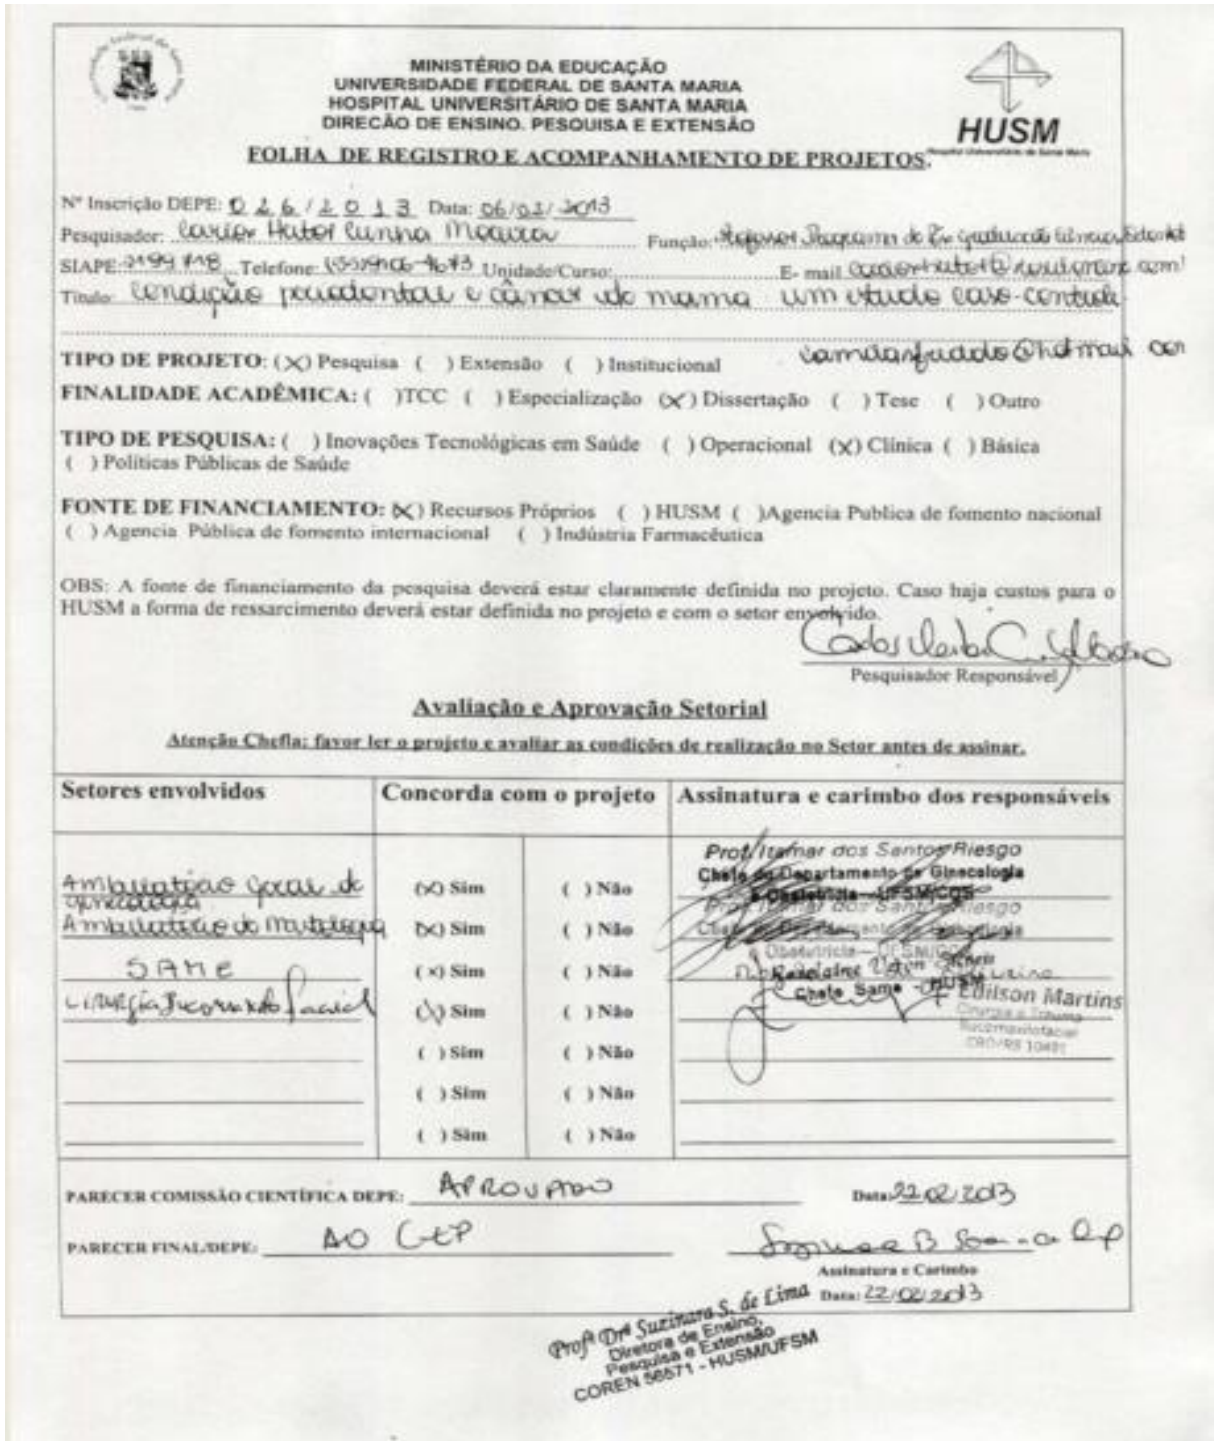 MINISTÉRIO DA EDUCAÇÃO
UNIVERSIDADE FEDERAL DE SANTA MARIA
HOSPITAL UNIVERSITÁRIO DE SANTA MARIA
DIRECÃO DE ENSINO. PESQUISA E EXTENSÃO
HUSM
Hospital Universitário de Santa Maria
FOLHA DE REGISTRO E ACOMPANHAMENTO DE PROJETOS.
Nº Inscrição DEPE: 026/2013 Data: 06/02/2013
Pesquisador: Heitor Cunha Moreira Função: Professor Programa de Pós Graduação Ciências
SIAPE: Telefone: Unidade/Curso: E- mail
Título: Condição periodontal e câncer de mama um estudo caso-controle
TIPO DE PROJETO: (X) Pesquisa ( ) Extensão ( ) Institucional
FINALIDADE ACADÊMICA: ( )TCC ( ) Especialização (X) Dissertação ( ) Tese ( ) Outro
TIPO DE PESQUISA: ( ) Inovações Tecnológicas em Saúde ( ) Operacional (X) Clínica ( ) Básica
( ) Políticas Públicas de Saúde
FONTE DE FINANCIAMENTO: (X) Recursos Próprios ( ) HUSM ( )Agencia Publica de fomento nacional
( ) Agencia Pública de fomento internacional ( ) Indústria Farmacêutica
OBS: A fonte de financiamento da pesquisa deverá estar claramente definida no projeto. Caso haja custos para o
HUSM a forma de ressarcimento deverá estar definida no projeto e com o setor envolvido.
Pesquisador Responsável
Avaliação e Aprovação Setorial
Atenção Chefia: favor ler o projeto e avaliar as condições de realização no Setor antes de assinar.
Setores envolvidos Concorda com o projeto Assinatura e carimbo dos responsáveis
Prof. Itamar dos Santos Riesgo
Chefe do Departamento de Ginecologia
e Obstetrícia - UFSM/CCS
Ambulatório Geral de
Ginecologia
(X) Sim ( ) Não
Prof. Itamar dos Santos Riesgo
Chefe do Departamento de Ginecologia
Obstetrícia - UFSM/CCS
Ambulatório de Mastologia (X) Sim ( ) Não
SAME (X) Sim ( ) Não
Chefe Same - HUSM
Cirurgia Bucomaxilo facial (X) Sim ( ) Não
Edilson Martins
Cirurgia e Trauma
Bucomaxilofacial
CRO/RS
( ) Sim ( ) Não
( ) Sim ( ) Não
( ) Sim ( ) Não
PARECER COMISSÃO CIENTÍFICA DEPE: APROVADO Data: 22/02/2013
PARECER FINAL/DEPE: AO CEP
Assinatura e Carimbo
Data: 22/02/2013
Profª Drª Suzinara S. de Lima
Diretora de Ensino,
Pesquisa e Extensão
COREN 56571 - HUSM/UFSM